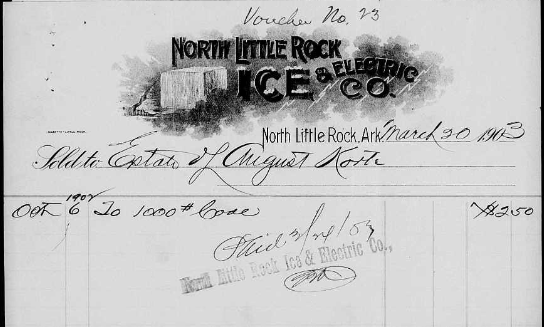 Voucher No. 23
NORTH LITTLE ROCK
ICE & ELECTRIC
CO.
North Little Rock, Ark. March 20 1903
Sold to Estate of August Korte
1902
Oct 6 To 1000 # Coal $2.50
Paid 3/20/03
North Little Rock Ice & Electric Co.,